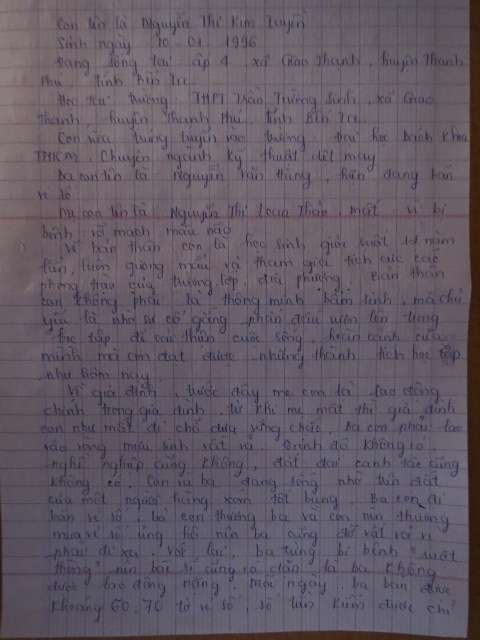 Con tên là Nguyễn Thị Kim Tuyền
Sinh ngày 10.01.1996
Đang sống tại ấp 4, xã Giao Thạnh, huyện Thạnh
Phú, tỉnh Bến Tre
Học tại trường THPT Trần Trường Sinh, xã Giao
Thạnh, huyện Thạnh Phú, tỉnh Bến Tre
Con vừa trúng tuyển vào trường Đại học Bách Khoa
TPHCM. Chuyên ngành Kỹ thuật dệt may
Ba con tên là Nguyễn Văn Hằng, hiện đang bán
vé số
Mẹ con tên là Nguyễn Thị Loan Thảo, mất vì bị
bệnh vỡ mạch máu não
Về bản thân con là học sinh giỏi suốt 12 năm
liền, luôn gương mẫu và tham gia tích cực các
phong trào của trường, lớp, địa phương. Bản thân
con không phải là thông minh bẩm sinh, mà chủ
yếu là nhờ sự cố gắng phấn đấu vươn lên trong
học tập để cải thiện cuộc sống, hoàn cảnh của
mình mà con đạt được những thành tích học tập
như hôm nay.
Về gia đình, trước đây mẹ con là lao động
chính trong gia đình, từ khi mẹ mất thì gia đình
con như mất đi chỗ dựa vững chắc. Ba con phải lao
vào vòng mưu sinh vất vả. Trình độ không có,
nghề nghiệp cũng không, đất đai canh tác cũng
không có. Con và ba đang sống nhờ trên đất
của một người hàng xóm tốt bụng. Ba con đi
bán vé số, bà con thương ba và con nên thường
mua vé số ủng hộ nên ba cũng đỡ vất vả vì
phải đi xa. Với lại, ba từng bị bệnh "suất
thống" nên bác sĩ cũng có dặn là ba không
được lao động nặng. Mỗi ngày, ba bán được
khoảng 60, 70 tờ vé số, số tiền kiếm được chỉ